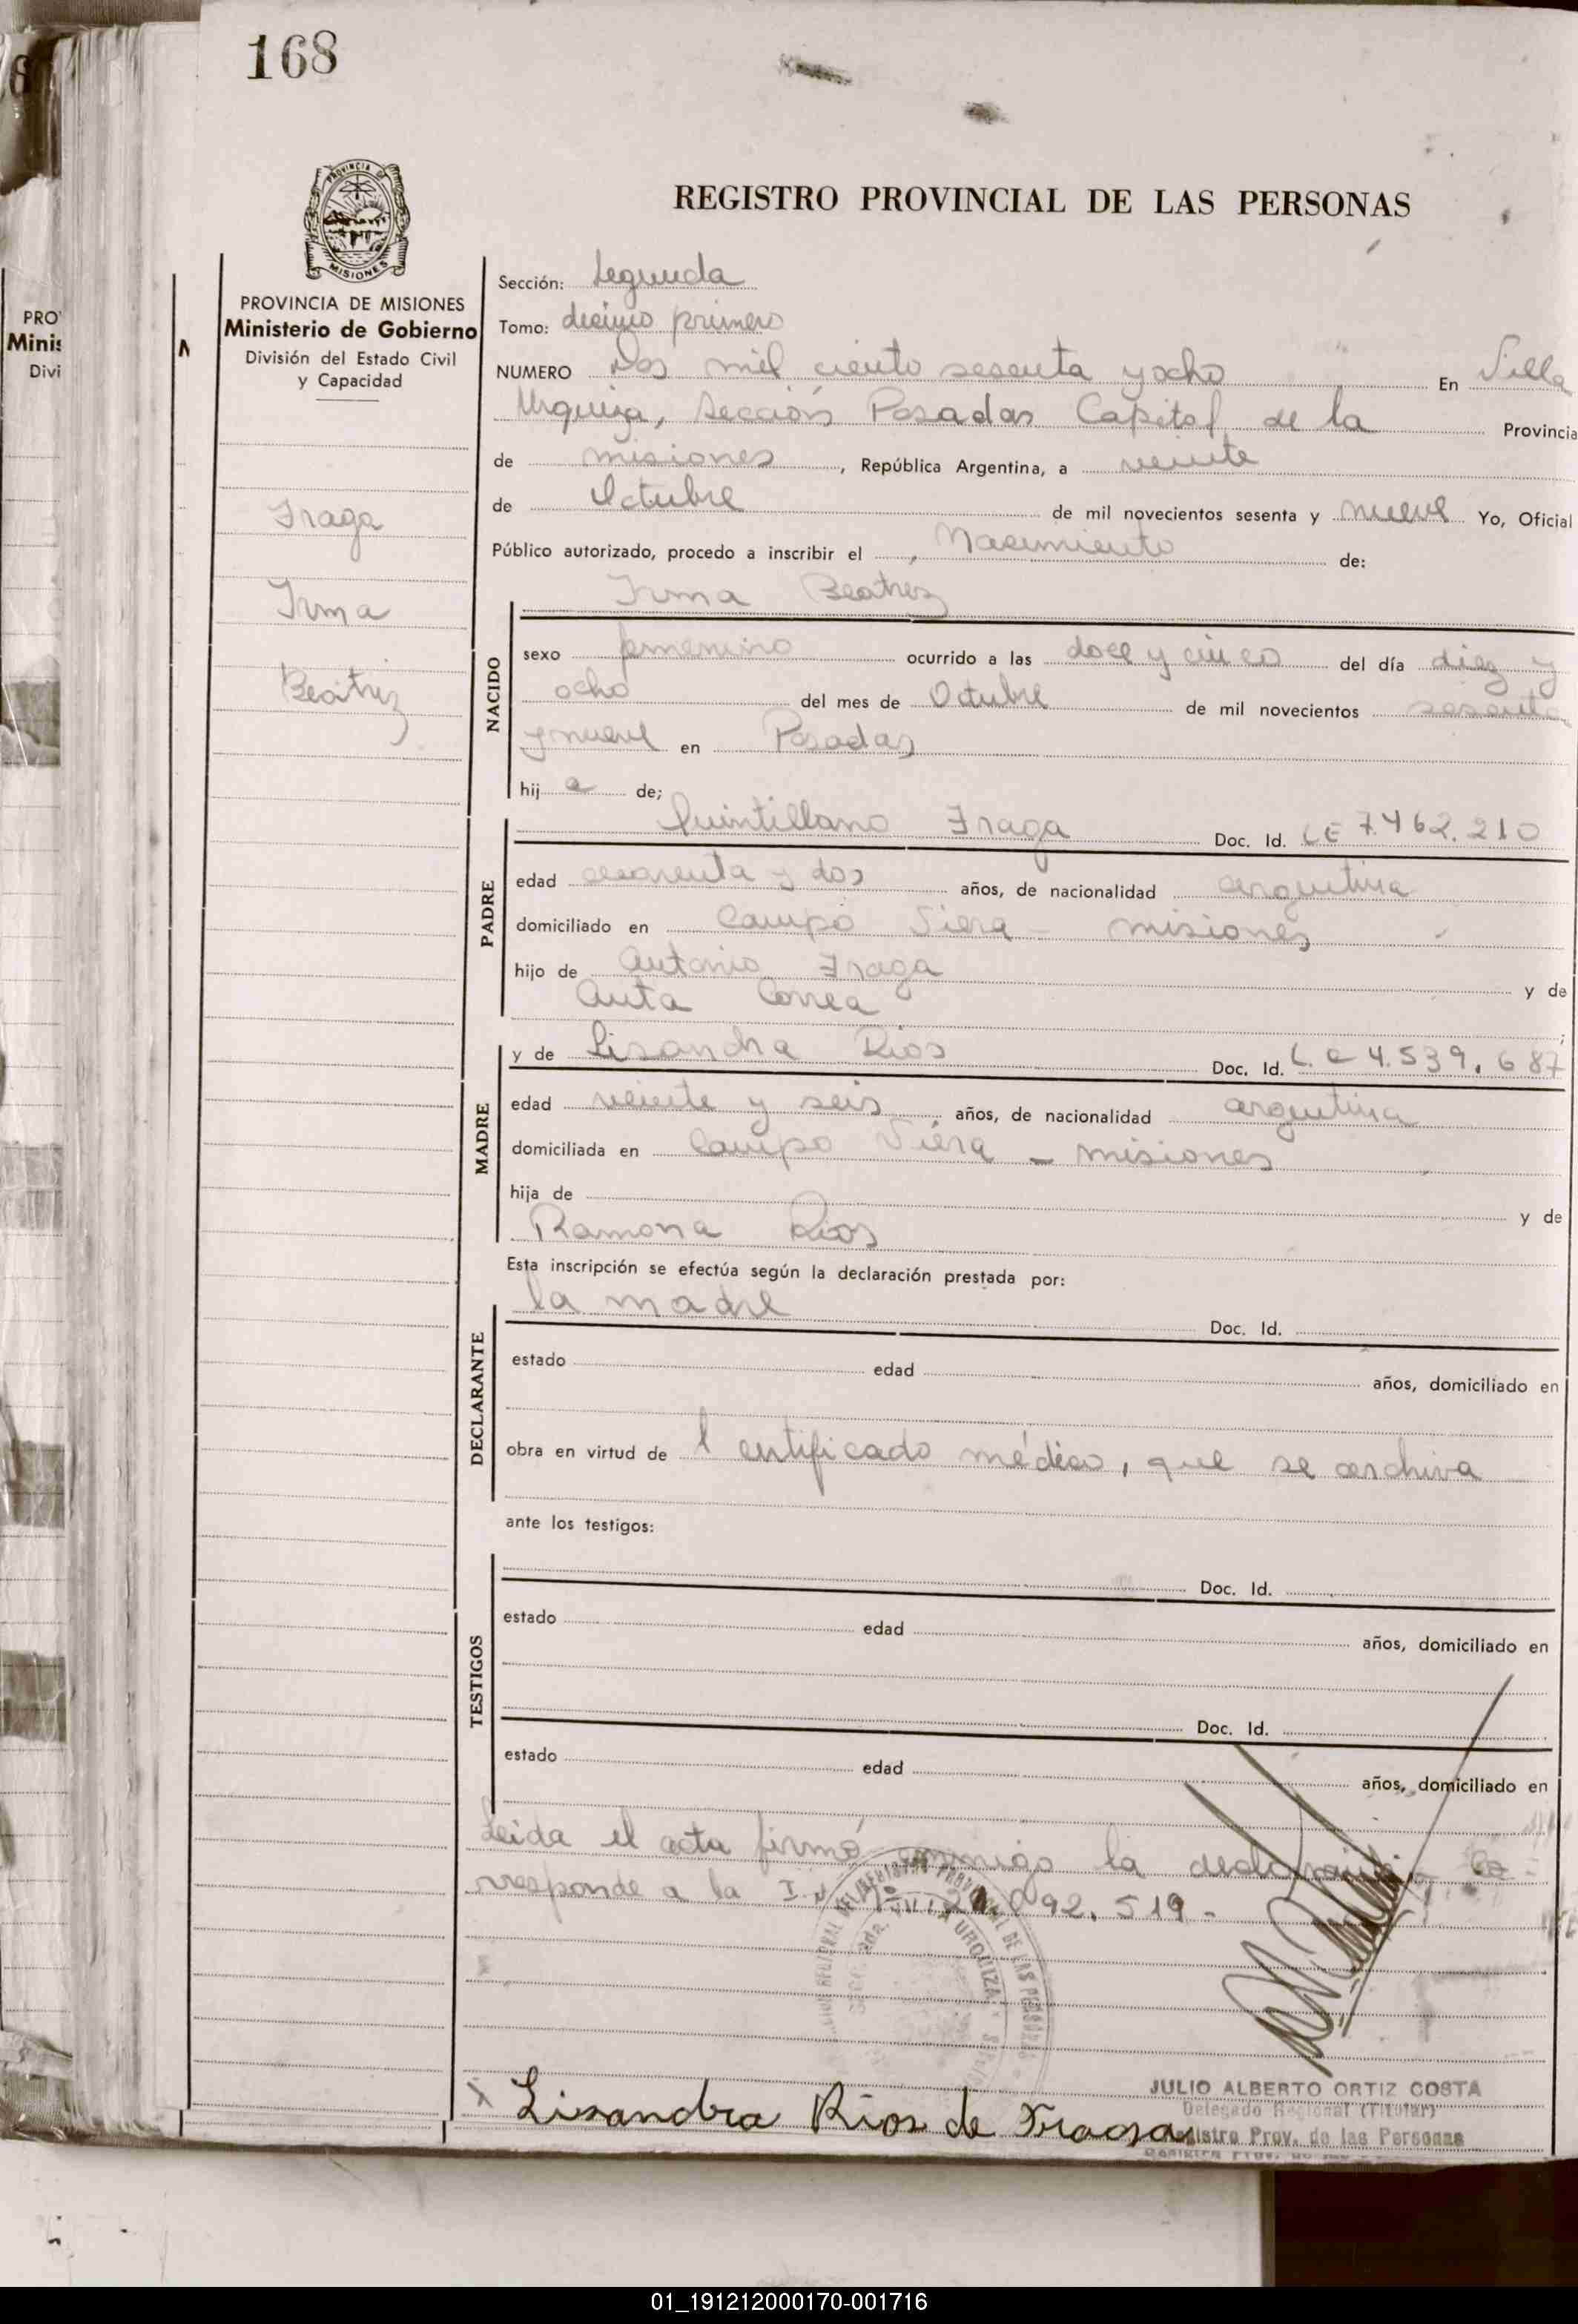 168
PROVINCIA DE
MISIONES
REGISTRO PROVINCIAL DE LAS PERSONAS
PROVINCIA DE MISIONES
Ministerio de Gobierno
División del Estado Civil
y Capacidad
Fraga
Irma
Beatriz
Sección: Segunda
Tomo: decimo primero
NUMERO Dos mil ciento sesenta y ocho En Villa
Urquiza, Sección Posadas Capital de la Provincia
de misiones, República Argentina, a veinte
de Octubre de mil novecientos sesenta y nueve Yo, Oficial
Público autorizado, procedo a inscribir el Nacimiento de:
Irma Beatriz
NACIDO
sexo femenino ocurrido a las doce y cinco del día diez y
ocho del mes de Octubre de mil novecientos sesenta
y nueve en Posadas
hij a de;
PADRE
Quintillano Fraga Doc. Id. LE 7.462.210
edad y dos años, de nacionalidad argentina
domiciliado en Campo Viera - misiones
hijo de Antonio Fraga y de
Anta Correa
MADRE
y de Lisandra Rios Doc. Id. L.C 4.539.687
edad veinte y seis años, de nacionalidad argentina
domiciliada en Campo Viera - misiones
hija de y de
Ramona Rios
Esta inscripción se efectúa según la declaración prestada por:
DECLARANTE
la madre Doc. Id.
estado edad años, domiciliado en
obra en virtud de Certificado médico, que se archiva
ante los testigos:
TESTIGOS
Doc. Id.
estado edad años, domiciliado en
Doc. Id.
estado edad años, domiciliado en
Leida el acta firmó conmigo la declarante. Co=
rresponde a la I. Nº 21.092.519.-
URQUIZA
DE LAS PERSONAS
x Lisandra Rios de Fraga
JULIO ALBERTO ORTIZ COSTA
Delegado Regional (Titular)
Registro Prov. de las Personas
PRO
Minis
Divi
01_191212000170-001716